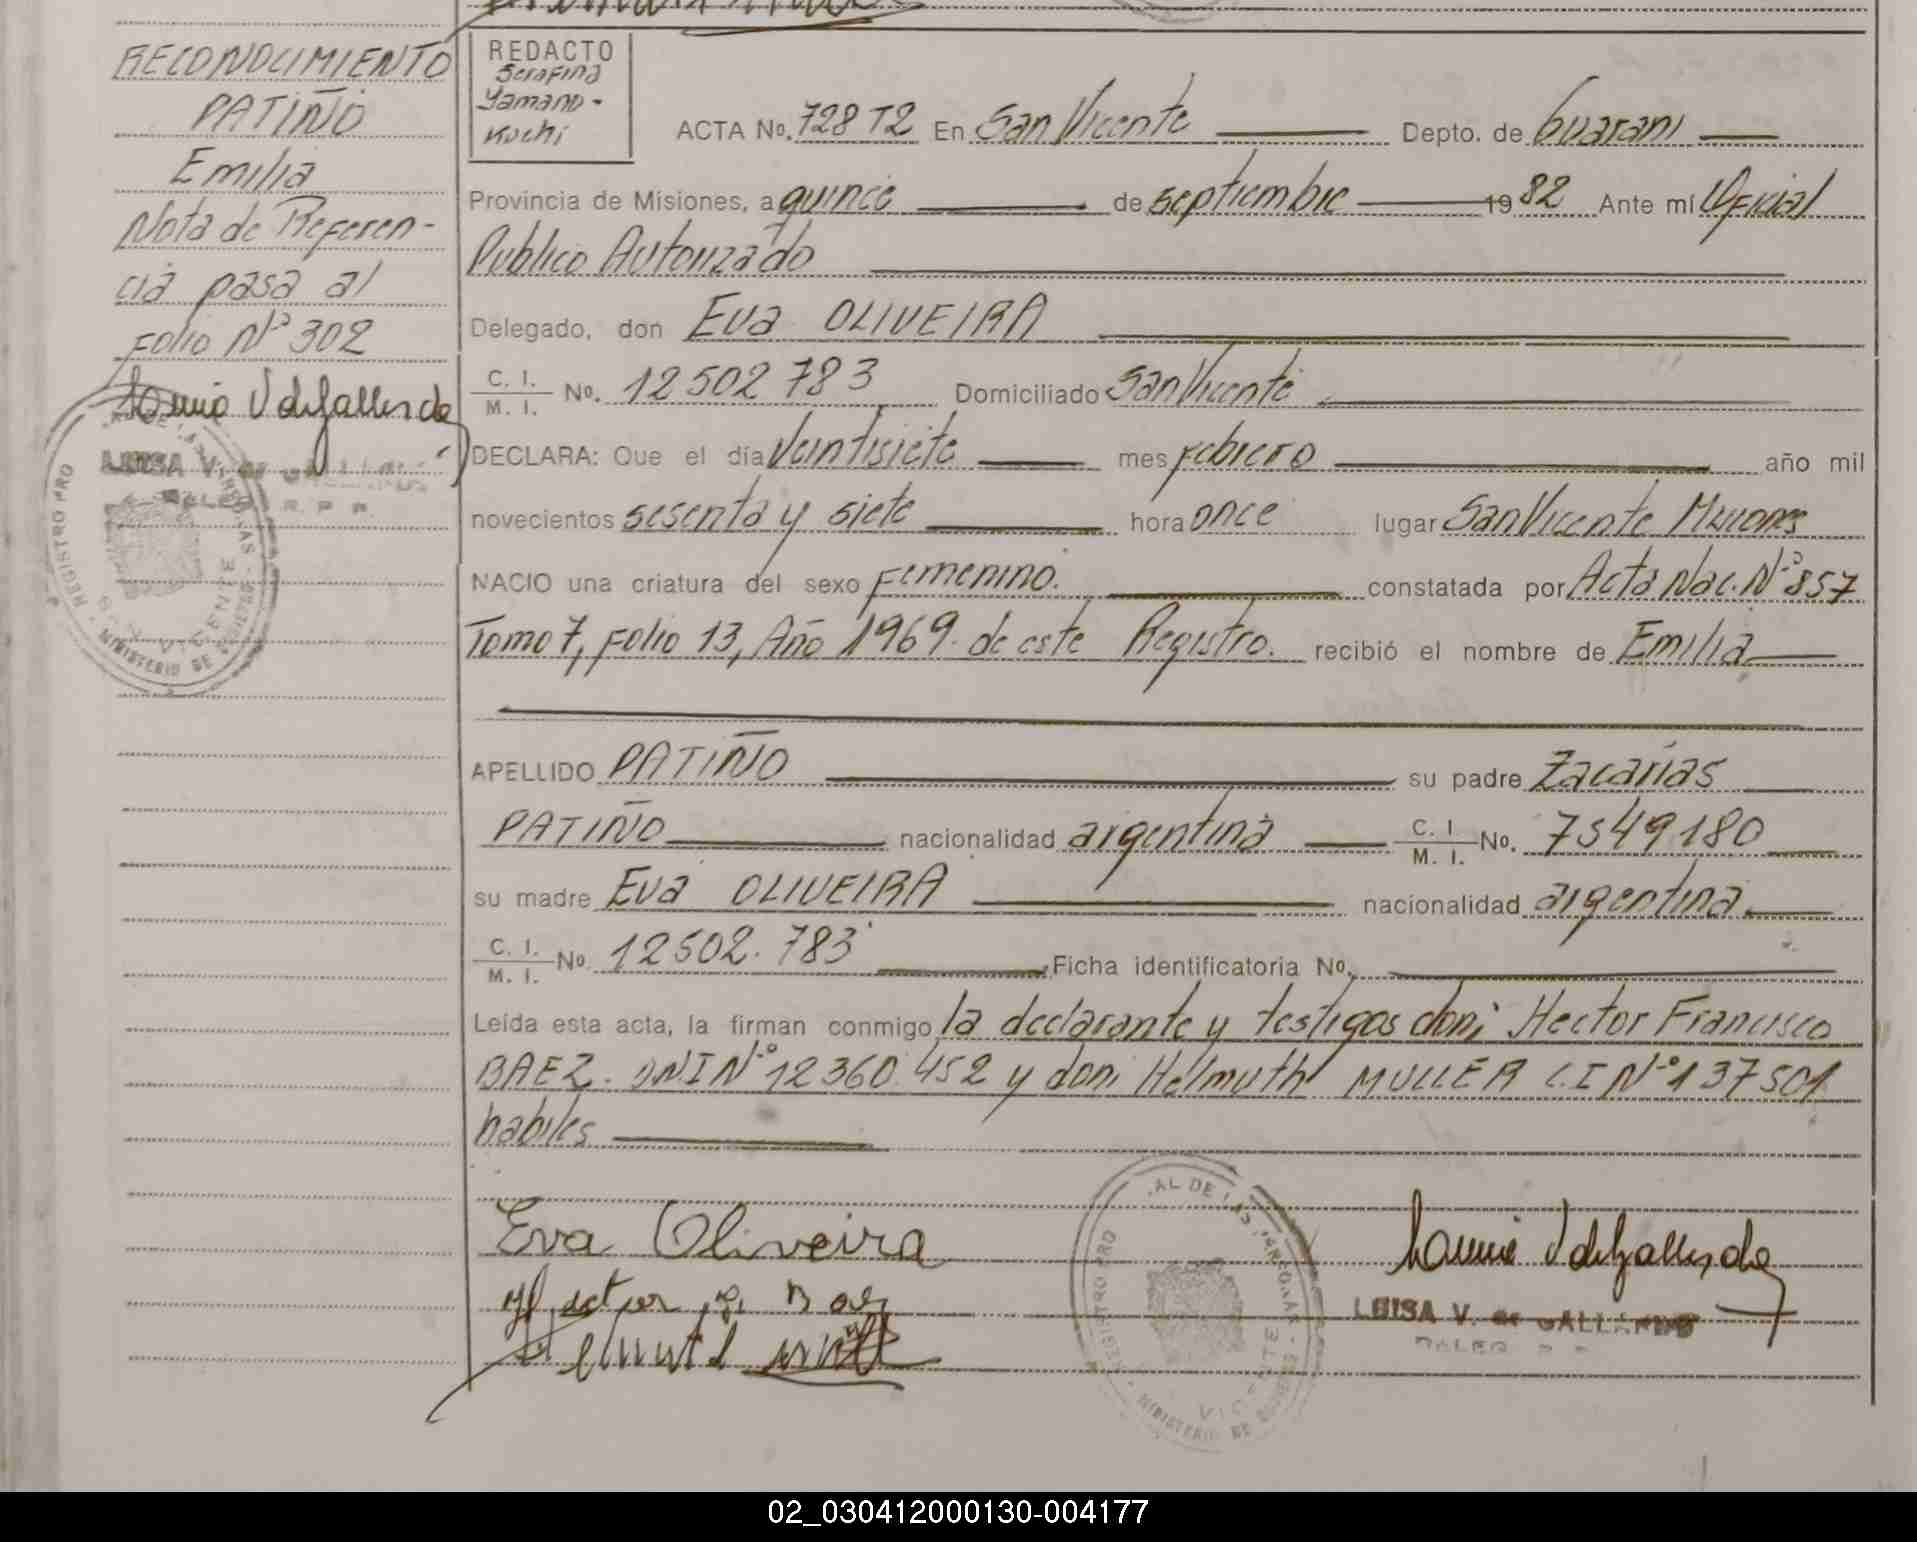 RECONOCIMIENTO
PATIÑO
Emilia
Nota de Referen-
cia pasa al
Folio Nº 302
LUISA V. de GALLARDO
REGISTRO PRO AL DE LAS PERSONAS
SAN VICENTE
MINISTERIO DE
REDACTO
Serafina
Yamano-
Kuchi
ACTA No. 728 T2 En San Vicente Depto. de Guarani
Provincia de Misiones, a quince de septiembre 1982 Ante mí Oficial
Publico Autorizado
Delegado, don Eva OLIVEIRA
C. I. / M. I. No. 12502 783 Domiciliado San Vicente
DECLARA: Que el día Veintisiete mes Febrero año mil
novecientos sesenta y siete hora once lugar San Vicente Misiones
NACIO una criatura del sexo Femenino. constatada por Acta Nac. Nº 857
Tomo 7, Folio 13, Año 1969. de este Registro. recibió el nombre de Emilia
APELLIDO PATIÑO su padre Zacarías
PATIÑO nacionalidad argentina C. I. / M. I. No. 7549180
su madre Eva OLIVEIRA nacionalidad argentina
C. I. / M. I. No. 12502.783 Ficha identificatoria No.
Leída esta acta, la firman conmigo la declarante y testigos don: Hector Francisco
BAEZ. DNI Nº 12360.452 y don: Helmuth MULLER C.I Nº 137501
habiles
Eva Oliveira
Hector F. Baez
REGISTRO PRO AL DE LAS PERSONAS
VICENTE
MINISTERIO DE
LUISA V. de GALLARDO
02_030412000130-004177